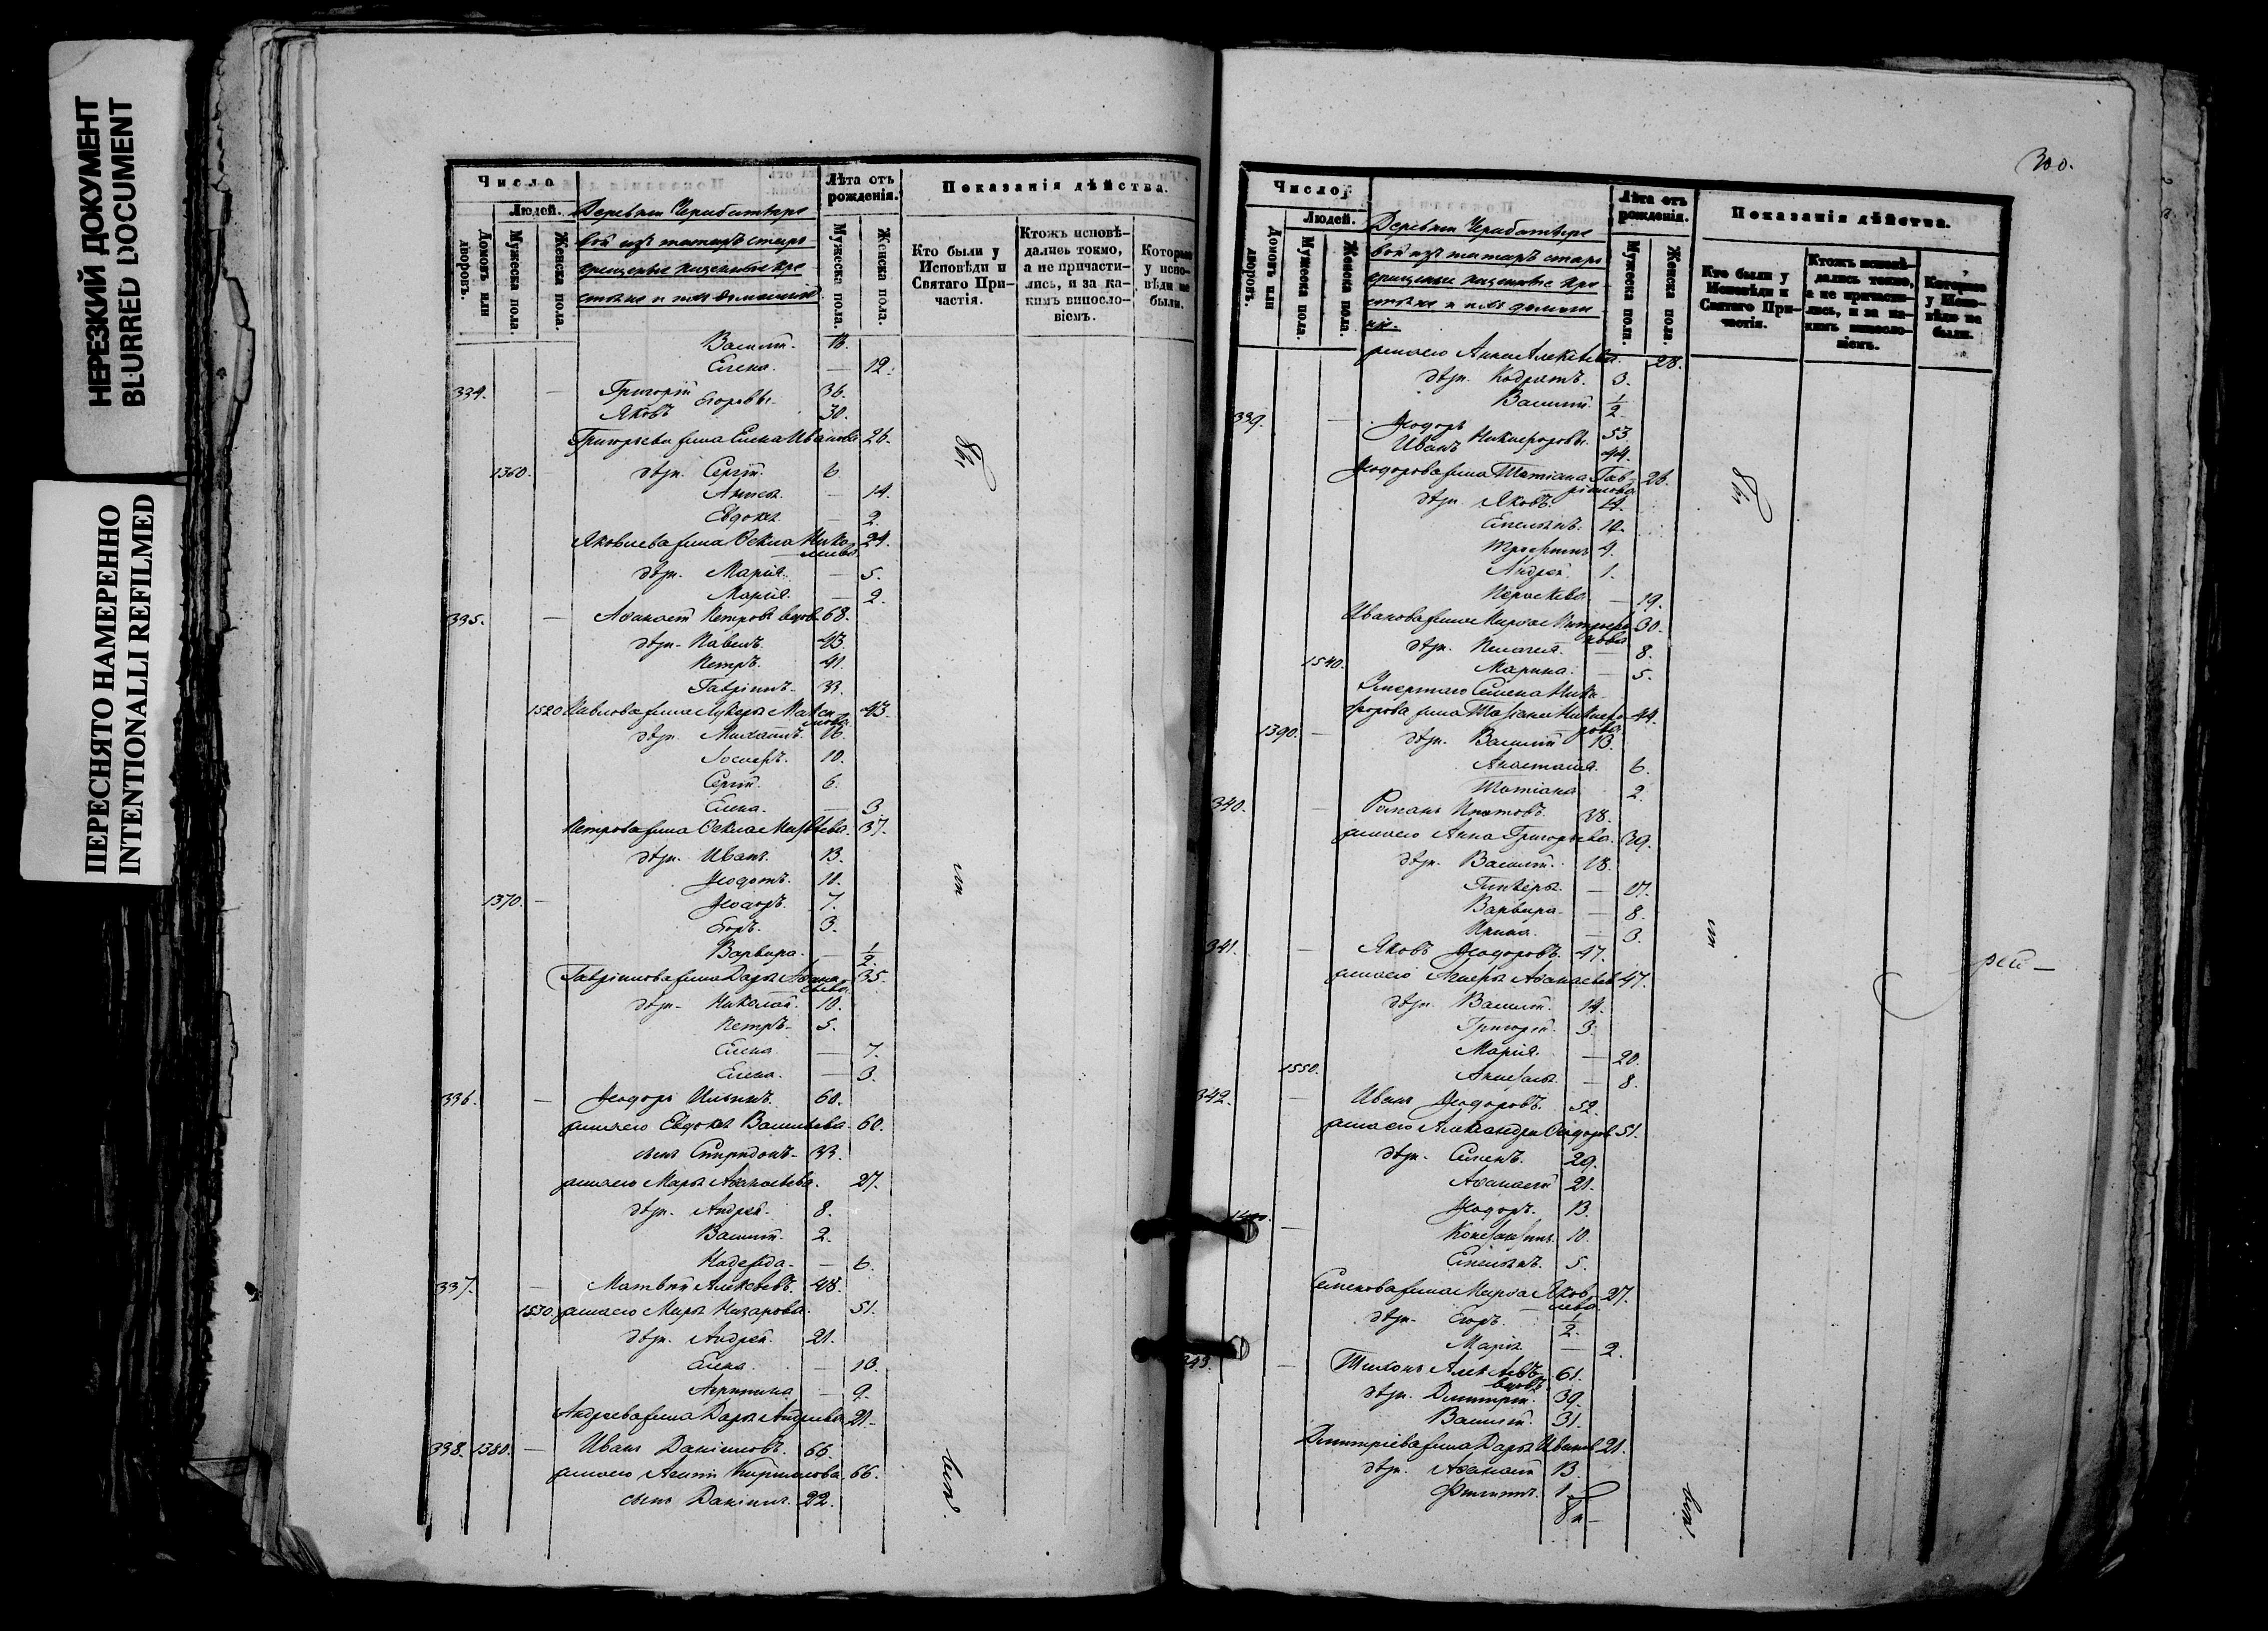 НЕРЕЗКИЙ ДОКУМЕНТ
BLURRED DOCUMENT
ПЕРЕСНЯТО НАМЕРЕННО
INTENTIONALLI REFILMED
Число
Людей.
Домовъ или дворовъ.
Мужеска пола.
Женска пола.
Деревни
вой изъ татаръ старо
крещеные казенные кре
стьяне и ихъ домашніе
Лѣта отъ рожденія.
Мужеска пола.
Женска пола.
Показанія дѣйства.
Кто были у Исповѣди и Святаго Причастія.
Ктожъ исповѣдались токмо, а не причастились, и за какимъ винословіемъ.
Которые у исповѣди не были.
Василій.
Елена. — 12.
334. — Григорій Егоровы. 36.
Яковъ 30.
Григорьева жена Елена Иванова 26.
1360. дѣти. Сергѣй. 6
— 14.
Евдокія — 2.
Яковлева жена Ѳекла Николаева 24.
дѣти. Марія. — 5.
Марія. — 2.
335. — Аѳанасій Петровъ вдовъ 68.
дѣти. Павелъ. 43.
Петръ. 41.
Гавріилъ. 33.
1520 Павлова жена Лукерья Максимова 43.
дѣти. Михаилъ. 16.
Іосифъ. 10.
Сергій. 6.
Елена. — 3
Петрова жена Ѳекла Матвѣева. 37.
дѣти. Иванъ. 13.
Ѳедотъ. 10.
1370. — Ѳеодоръ. 7.
Егоръ. 3.
Варвара. — 1/2.
Гавріилова жена Дарья Аѳанасьева 35.
дѣти. Николай. 10.
Петръ. 5.
Елена — 7.
Елена. — 3.
336. — Ѳеодоръ Ильинъ. 60.
жена его Евдокія Васильева. 60.
сынъ Спиридонъ. 33.
жена его Марья Аѳанасьева. 27.
дѣти. Андрей. 8.
Василій. 2.
Надежда. — 6.
337. — Матвѣй Алексѣевъ. 48.
1530. жена его Марья Назарова. 51.
дѣти. Андрей. 21.
Елена. — 13.
Агрипина — 9.
Андреева жена Дарья Андреева 21.
338. 1380. — Иванъ Даніиловъ. 66.
жена его Кирилова. 66.
сынъ Даніилъ. 22.
300.
Число
Людей.
Домовъ или дворовъ.
Мужеска пола.
Женска пола.
Деревни
вой изъ татаръ старо
крещеные казенные кре
стьяне и ихъ домаш
ніе.
Лѣта отъ рожденія.
Мужеска пола.
Женска пола.
Показанія дѣйства.
Кто были у Исповѣди и Святаго Причастія.
Ктожъ исповѣдались токмо, а не причастились, и за какимъ винословіемъ.
Которые у Исповѣди не были.
жена его Анна Алексѣева. — 28.
дѣти. Кодратъ. 3.
Василій. 1/2.
339. — Ѳеодоръ Никифоровы. 53
Иванъ 44.
Ѳеодорова жена Татіана Гавріилова 26.
дѣти Яковъ. 14.
Емельянъ. 10.
Трофимъ 4.
Андрей. 1.
Параскева — 19.
Иванова жена Марѳа Митрофанова 30.
дѣти. Пелагея. — 8.
1540. Марина. — 5.
Умершаго Семена Ники
форова жена Татіана Никифорова 44.
1390. — дѣти. Василій 13.
Анастасія. 6.
Татіана 2.
340. — Романъ Ипатовъ. 38.
жена его Анна Григорьева. 39.
дѣти. Василій. 18.
Гликерья. — 17.
Варвара. — 8.
Ирина. — 3.
341. — Яковъ Ѳеодоровъ. 47.
жена его Аѳанасьева 47.
дѣти. Василій. 14.
Григорій. 3.
Марія. — 20.
1550. — 8.
342. — Иванъ Ѳеодоровъ. 52.
жена его Александра Ѳеодоров. 51.
дѣти. Семенъ. 29.
Аѳанасій 21.
Ѳеодоръ. 13.
— Константинъ. 10.
Емельянъ. 5.
Семенова жена Марѳа Яковлева 27.
дѣти. Егоръ. 1/2.
Марія — 2.
343. — Тихонъ Алексѣевъ вдовъ 61.
дѣти. Дмитрій. 39.
Василій. 31.
Дмитріева жена Дарья Иванов. 21.
дѣти. Аѳанасій 13.
Филиппъ. 1